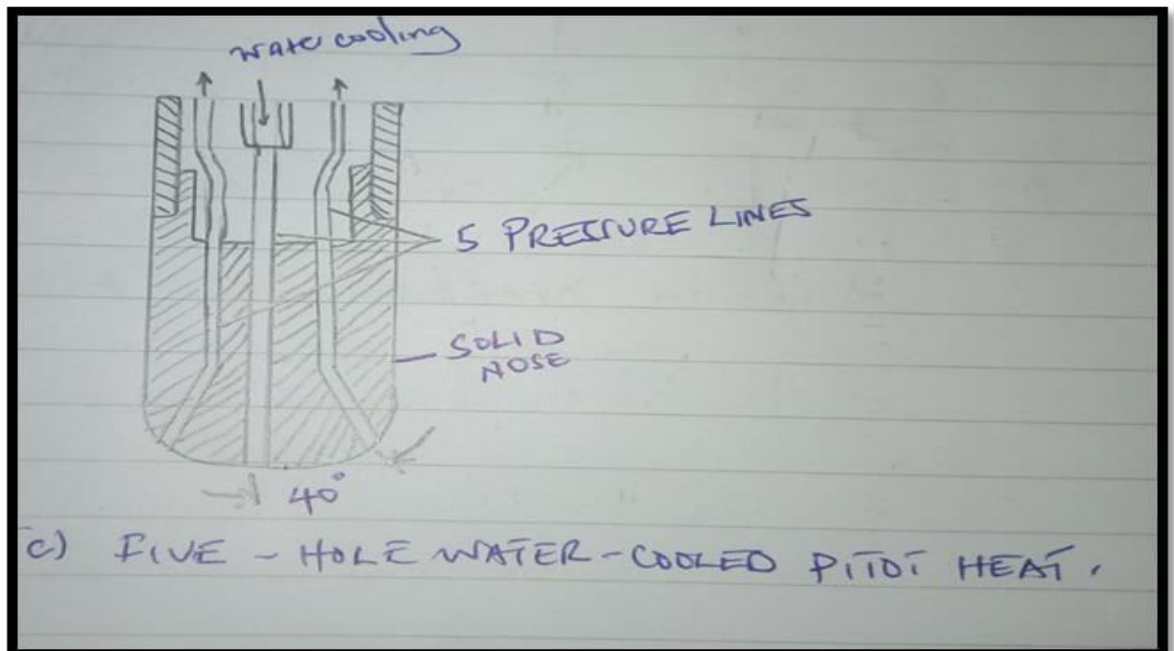 water cooling
5 PRESSURE LINES
SOLID
NOSE
40°
c) FIVE - HOLE WATER-COOLED PITOT HEAT.